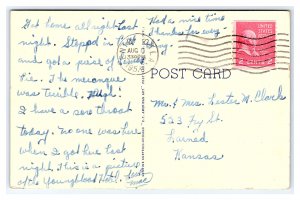 Got home all right last
night. Stopped in
and got a piece of
Pie. The meringue
was terrible. Ugh!
I have a sore throat
today. No one was here
when I got here last
night. This is a picture
of the Youngblood Hotel.
Had a nice time
Thanks for every
thing.
AUG
1954
UNITED STATES
2 CENTS 2
POST CARD
Mr. & Mrs. Lester W. Clark
523 Ivy St.
Larned
Kansas